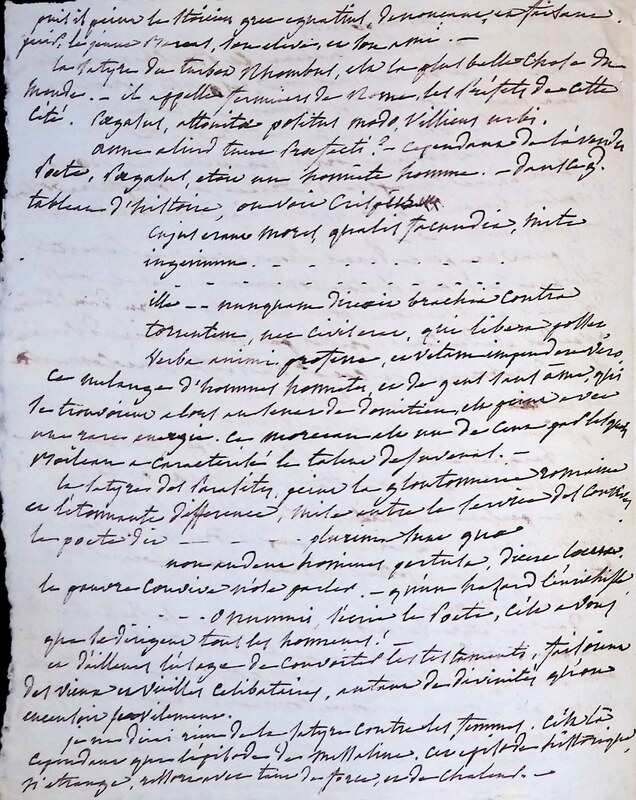 puis il peint le stoicien grec egnatius, denonçant, et faisant
périr, le jeune Bareas, son eleve, et son ami. —
la satyre du turbot Rhombus, est la plus belle chose du
monde. — il appelle, fermiers de Rome, les Préfets de cette
Cité. Pegasus, attonitæ positus modo, Villicus urbi.
anne aliud tunc Præfecti? — cependant de l'aveu du
Poete, Pegasus, etoit un honnête homme. — dans ce
tableau d'histoire, on voit Crispus
cujus erant mores, qualis facundia, mite
ingenium. - - - - - - -
ille — nunquam direxit brachia contra
torrentem, nec civis erat, qui libera posset
Verba animi proferre, et vitam impendere vero.
Ce mélange d'hommes honnêtes, et de gens sans âme, qui
se trouvoient alors au senat de Domitien, est peint avec
une rare energie. Ce morceau est un de ceux par lesquels
Boileau a caracterisé le talent de Juvenal. —
la satyre des Parasites, peint la gloutonnerie romaine
et l'etonnante difference, mise entre le service des Convives
le poete dit - - - - plurima sunt quæ
non audent homines pertusa, dicere læna.
le pauvre convive n'ose parler. — qu'un hazard l'enrichisse
- - - O nummi, s'ecrie le Poete, c'est a vous
que se dirigent tous les honneurs!
et d'ailleurs l'usage de convoiter les testaments, faisoient
des vieux et vieilles celibataires, autant de divinités qu'on
encensoit servilement.
je ne dirai rien de la satyre contre les femmes. C'est là
cependant que l'episode de Messaline, cet episode historique,
si etrange, ressort avec tant de force, et de chaleur. —